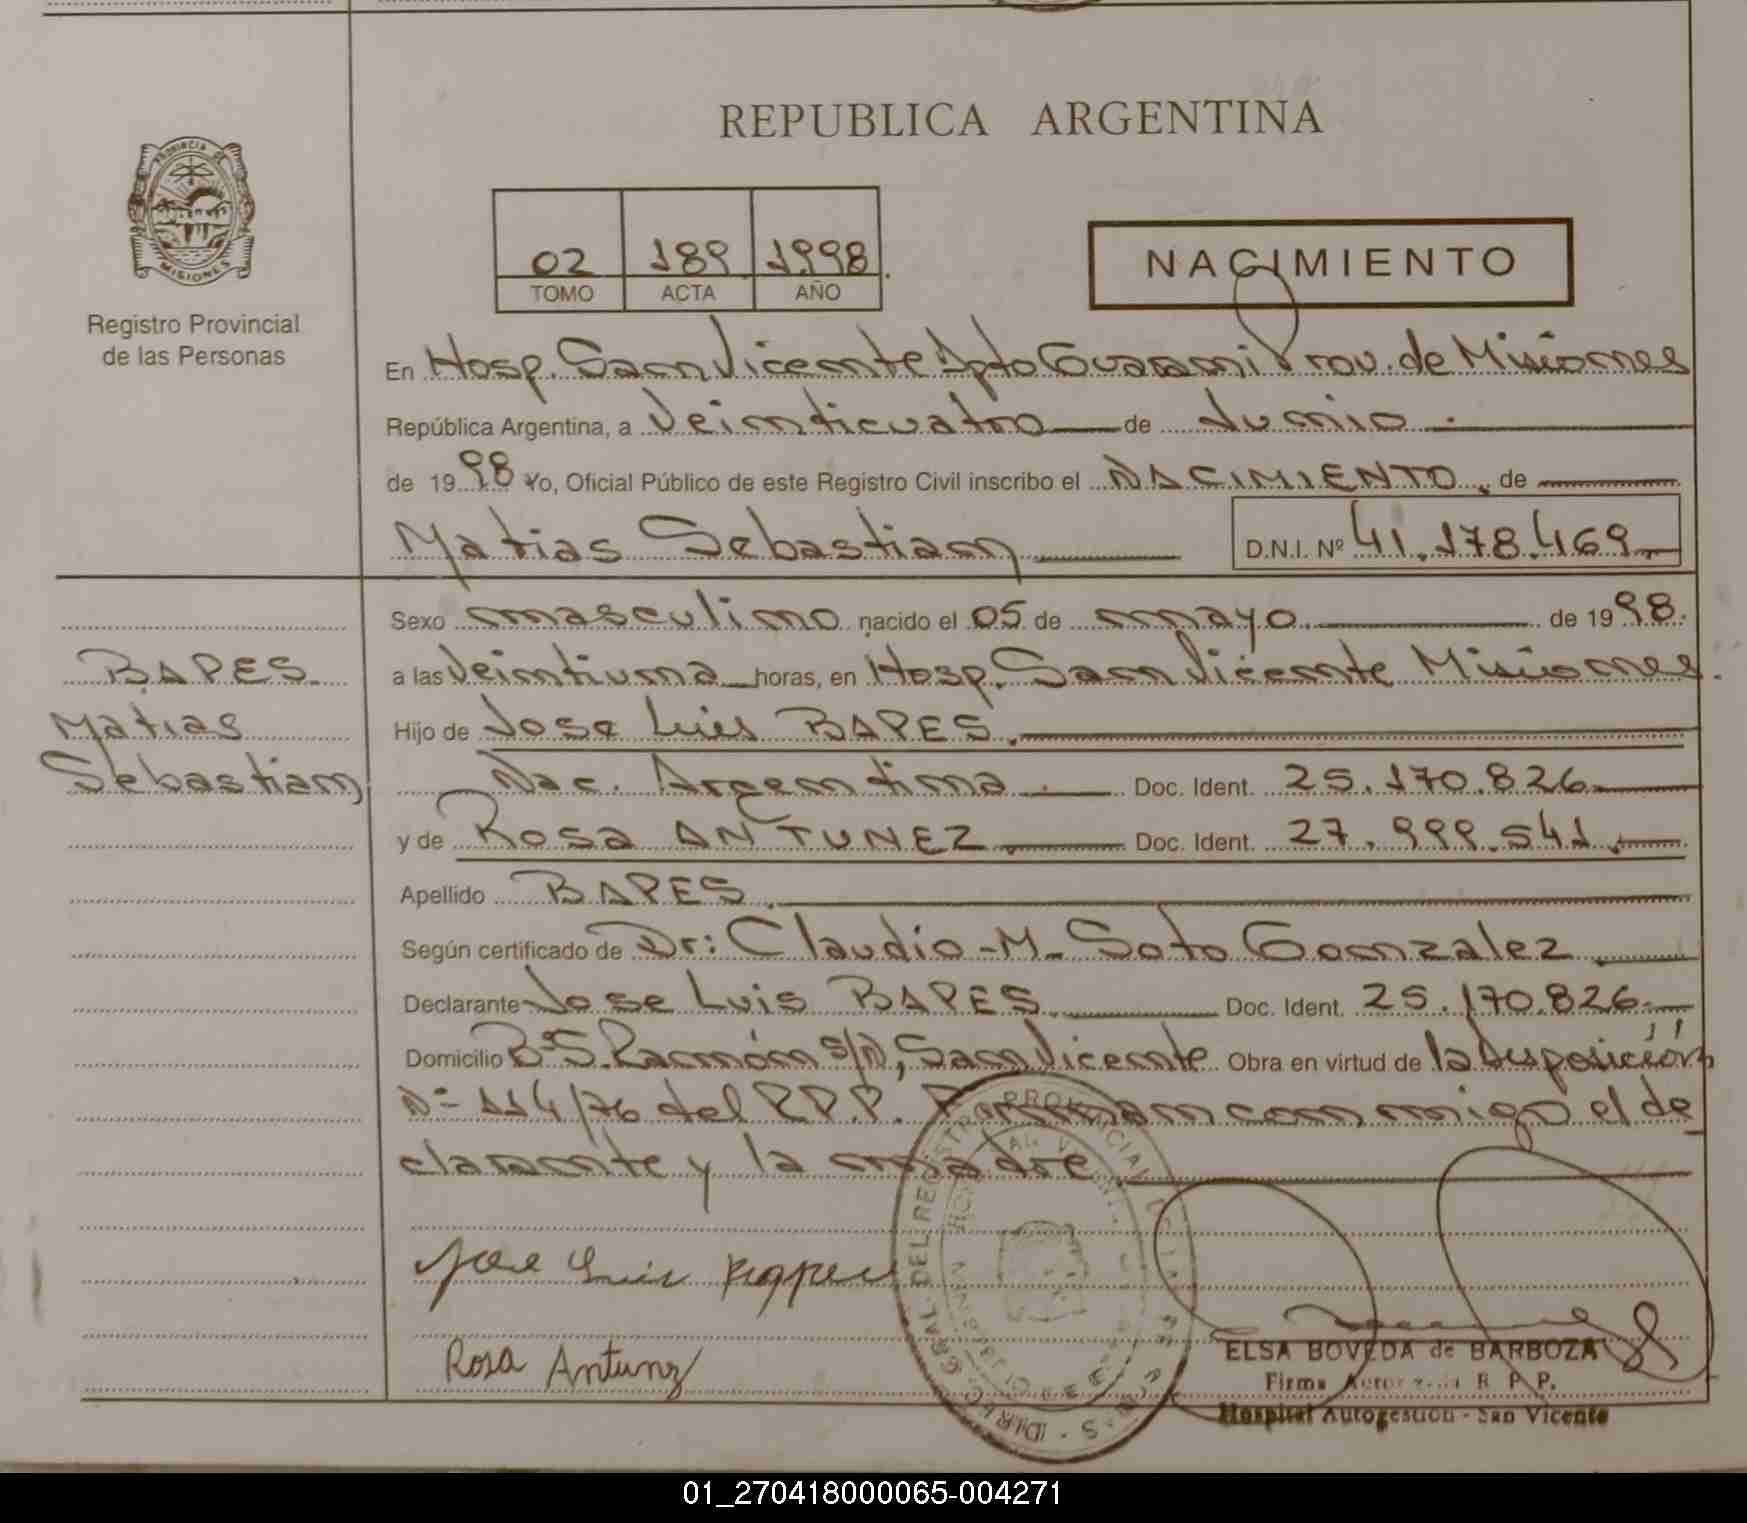 REPUBLICA ARGENTINA
PROVINCIA DE
MISIONES
Registro Provincial
de las Personas
02 189 1998
TOMO ACTA AÑO
NACIMIENTO
En Hosp. San Vicente Dpto Guarani Prov. de Misiones
República Argentina, a Veinticuatro de Junio
de 1998 Yo, Oficial Público de este Registro Civil inscribo el NACIMIENTO, de
Matias Sebastian D.N.I. Nº 41.178.469
Sexo masculino nacido el 05 de mayo de 1998.
BAPES
Matias
Sebastian
a las Veintiuna horas, en Hosp. San Vicente Misiones.
Hijo de Jose Luis BAPES.
Nac. Argentina. Doc. Ident. 25.170.826
y de Rosa ANTUNEZ Doc. Ident. 27.999.541
Apellido BAPES
Según certificado de Dr: Claudio-M-Soto Gonzalez
Declarante Jose Luis BAPES. Doc. Ident. 25.170.826
Domicilio Bº S. Ramón s/N, San Vicente Obra en virtud de la disposición
Nº 114/76 del R.P.P. Firman conmigo el de
clarante y la madre
Jose Luis
Rosa Antunz
ELSA BOVEDA de BARBOZA
Firma R. P. P.
Hospital Autogestion - San Vicente
01_270418000065-004271